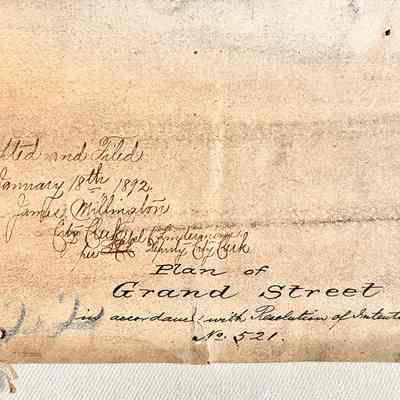 pted and Filed
January 18th 1892.
James Millington
City Clerk
her Deputy City Clerk
Plan of
Grand Street
in accordance with Resolution of Intent
No. 521.